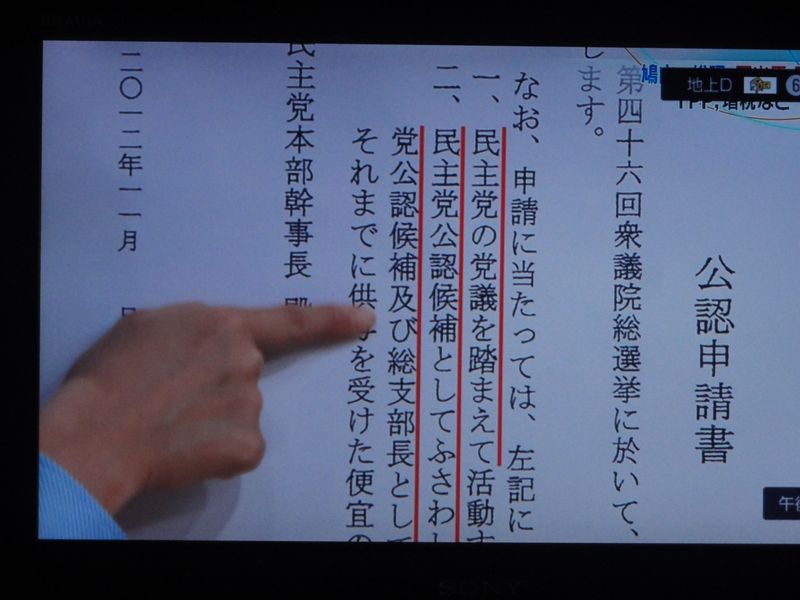 公認申請書
第四十六回衆議院総選挙に於いて、
します。
なお、申請に当たっては、左記に
一、民主党の党議を踏まえて活動す
二、民主党公認候補としてふさわし
党公認候補及び総支部長として
それまでに供与を受けた便宜の
民主党本部幹事長 殿
二〇一二年一一月
地上D
TPP,増税など
午後
BRAVIA
SONY